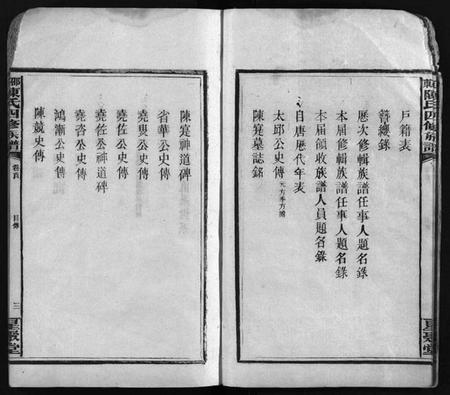 陳氏四修族譜
戶籍表
簪纓錄
歷次修輯族譜任事人題名錄
本屆修輯族譜任事人題名錄
本屆領收族譜人員題名錄
自唐歷代年表
太邱公史傳 元方季方附
陳寔墓誌銘
陳寔神道碑
省華公史傳
堯叟公史傳
堯佐公史傳
堯佐公神道碑
堯咨公史傳
鴻漸公史傳
陳兢史傳
陳氏四修族譜
卷首
目錄
三
星聚堂